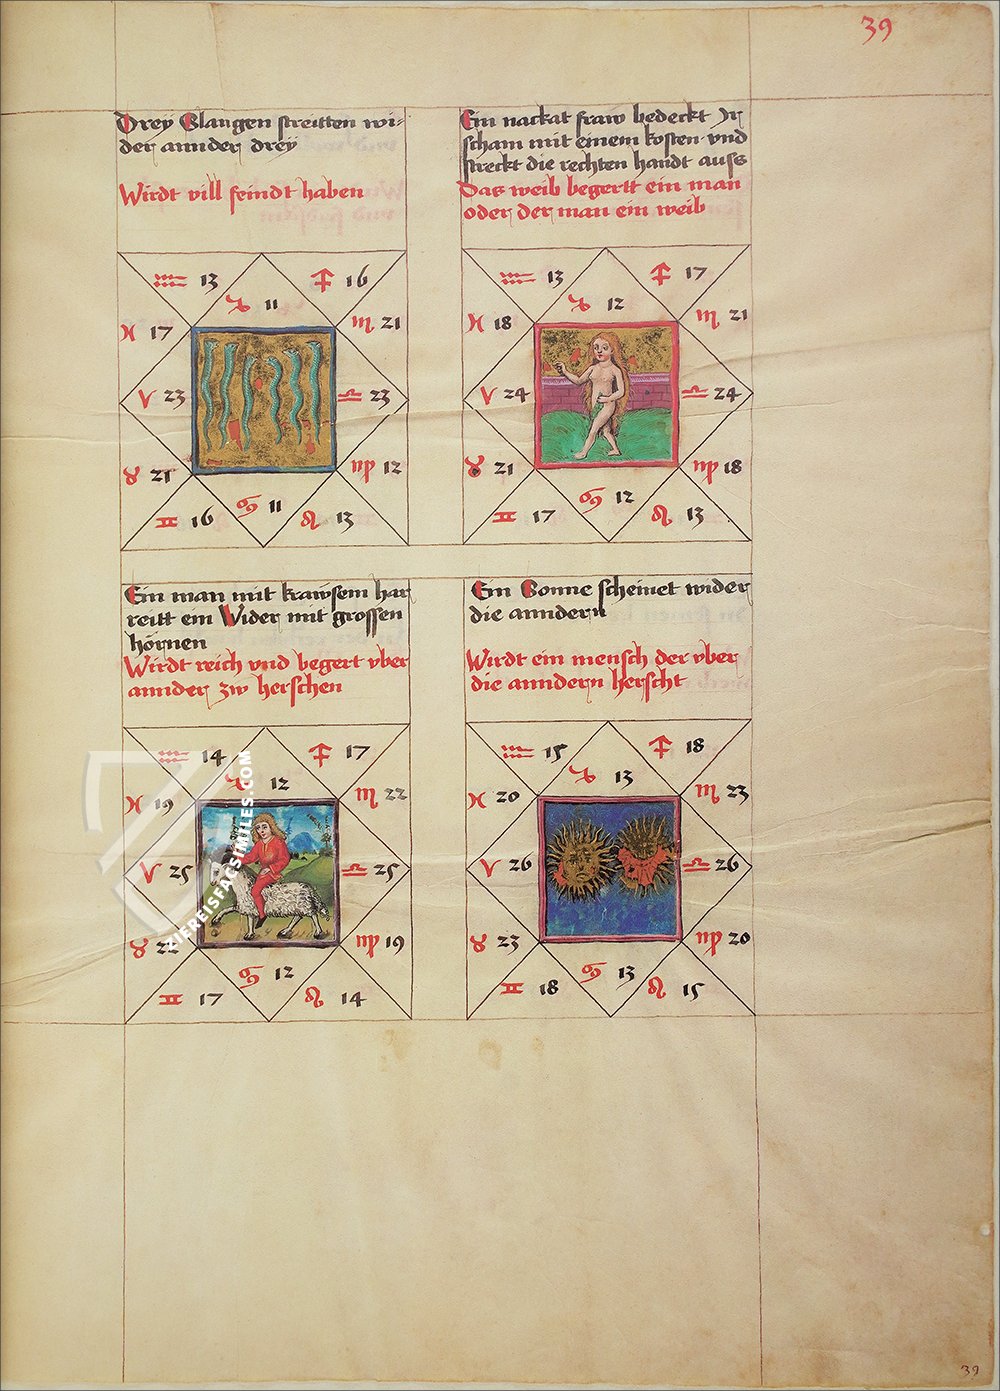 39
Drey Slangen streitten wi-
der annder drey
Wirdt vill feindt haben
♒ 13
♐ 16
♑ 11
♓ 17
♏ 21
♈ 23
♎ 23
♉ 21
♍ 12
♊ 16
♋ 11
♌ 13
Ein nackat fraw bedeckt Ir
scham mit einem kosten vnd
streckt die rechten handt auss
Das weib begertt ein man
oder der man ein weib
♒ 13
♐ 17
♑ 12
♓ 18
♏ 21
♈ 24
♎ 24
♉ 21
♍ 18
♊ 17
♋ 12
♌ 13
Ein man mit krawsem har
reitt ein Wider mit grossen
hörnen
Wirdt reich vnd begert vber
annder zw herschen
♒ 14
♐ 17
♑ 12
♓ 19
♏ 22
♈ 25
♎ 25
♉ 22
♍ 19
♊ 17
♋ 12
♌ 14
Ein Sonne scheinet wider
die anndern
Wirdt ein mensch der vber
die anndern herscht
♒ 15
♐ 18
♑ 13
♓ 20
♏ 23
♈ 26
♎ 26
♉ 23
♍ 20
♊ 18
♋ 13
♌ 15
ZIEREISFACSIMILES.COM
39